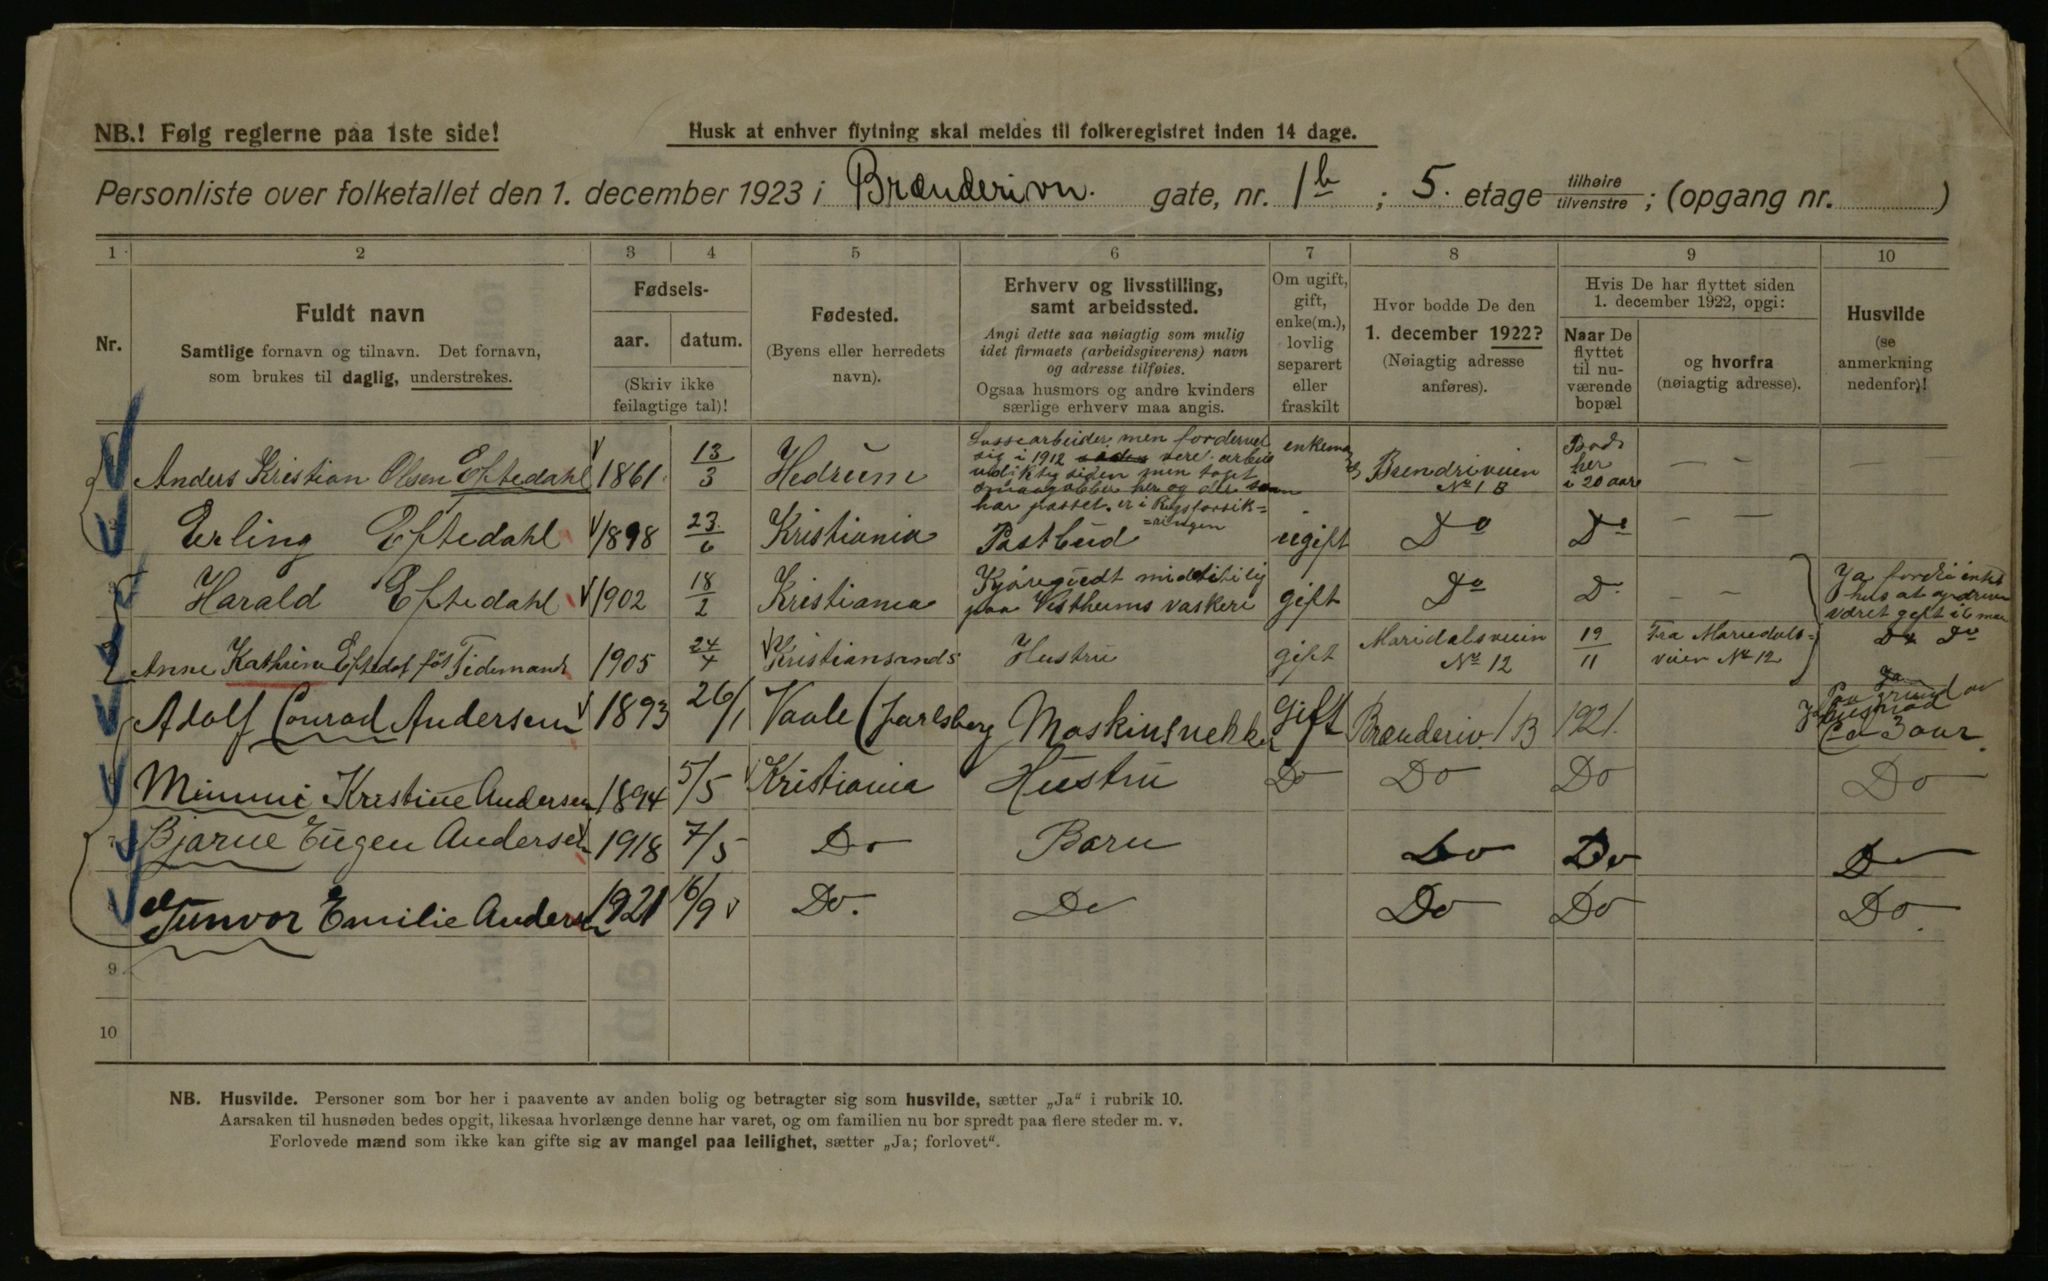 NB.! Følg reglerne paa 1ste side!
Husk at enhver flytning skal meldes til folkeregistret inden 14 dage.
Personliste over folketallet den 1. december 1923 i Brænderivn. gate, nr. 1b ; 5. etage tilhøire tilvenstre ; (opgang nr. )
1 2 3 4 5 6 7 8 9 10
Nr.
Fuldt navn
Samtlige fornavn og tilnavn. Det fornavn,
som brukes til daglig, understrekes.
Fødsels-
aar. datum.
(Skriv ikke
feilagtige tal)!
Fødested.
(Byens eller herredets
navn).
Erhverv og livsstilling,
samt arbeidssted.
Angi dette saa nøiagtig som mulig
idet firmaets (arbeidsgiverens) navn
og adresse tilføies.
Ogsaa husmors og andre kvinders
særlige erhverv maa angis.
Om ugift,
gift,
enke(m.),
lovlig
separert
eller
fraskilt
Hvor bodde De den
1. december 1922?
(Nøiagtig adresse
anføres).
Hvis De har flyttet siden
1. december 1922, opgi:
Naar De
flyttet
til nu-
værende
bopæl
og hvorfra
(nøiagtig adresse).
Husvilde
(se
anmerkning
nedenfor)!
Anders Kristian Olsen Eftedahl 1861 13/3 Hedrum
men fordervet
sig i 1912 arbeids
siden men taget
her og der som
har passet. er i
enkemand Brendriveien
No 1 B
Bodt
her
i 20 aar — —
Erling Eftedahl 1898 23/6 Kristiania Postbud ugift Do Do — —
Harald Eftedahl 1902 18/2 Kristiania
Kjøregudt midtitilig
paa Vestheims vaskeri
gift Do Do — —
Ja fordi intet
hus at
været gift i 6 mdr
Anne Kathrine Eftedal føt Tidemand 1905 24/4 Kristiansands Hustru gift
Maridalsveien
No 12
19/11
Fra Maridals-
veien No 12
Do
Adolf Conrad Andersen 1893 26/1 Vaale (Jarlsberg Maskinsnekker gift Brænderiv. 1B 1921.
Ja
Paa grund av
husnød
Ca 3 aar.
Mimmi Kristine Andersen 1894 5/5 Kristiania Hustru Do Do Do Do
7 Bjarne Eugen Andersen 1918 7/5 Do Barn Do Do Do
Gunvor Emilie Andersen 1921 16/9 Do. Do Do Do Do.
9
10
NB. Husvilde. Personer som bor her i paavente av anden bolig og betragter sig som husvilde, sætter „Ja“ i rubrik 10.
Aarsaken til husnøden bedes opgit, likesaa hvorlænge denne har varet, og om familien nu bor spredt paa flere steder m. v.
Forlovede mænd som ikke kan gifte sig av mangel paa leilighet, sætter „Ja; forlovet“.